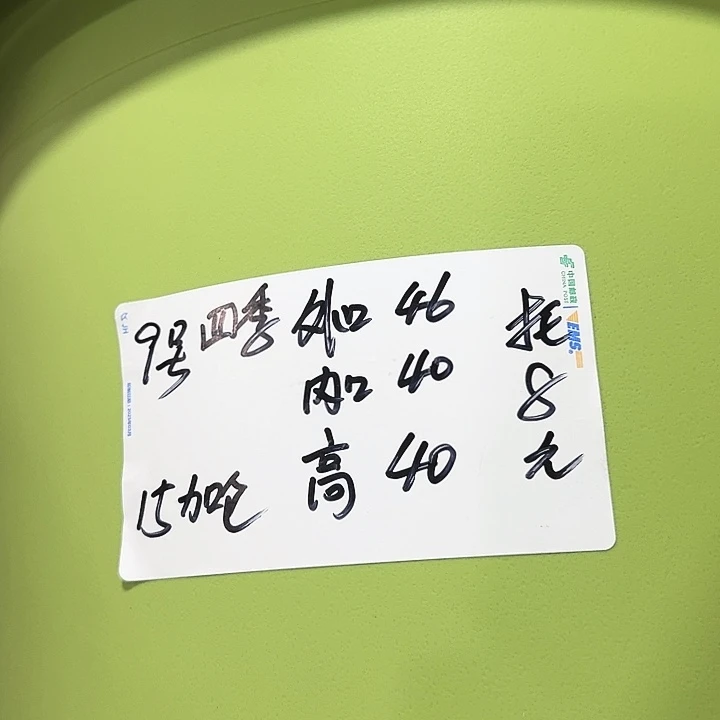 9号 四季 外口 46 耗
内口 40 8
15加仑 高 40 元
中国邮政
CHINA POST
EMS